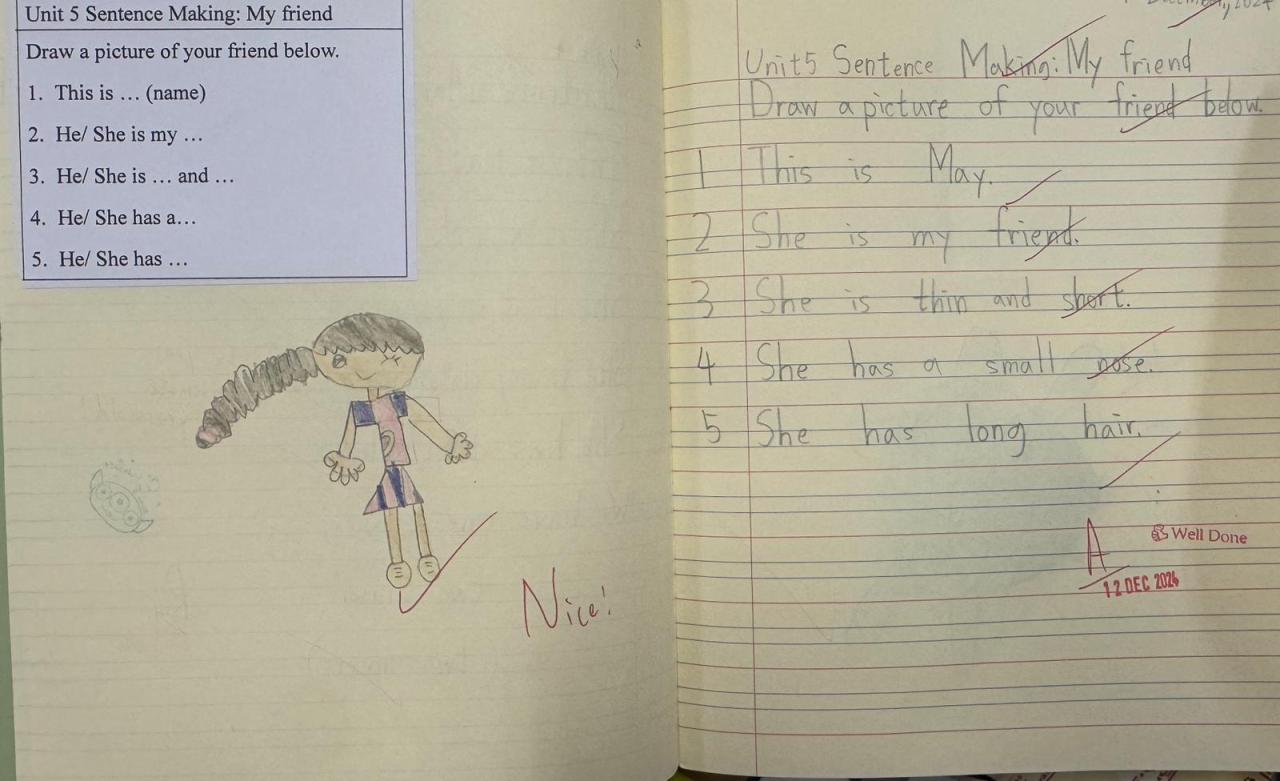 Unit 5 Sentence Making: My friend
Draw a picture of your friend below.
1. This is … (name)
2. He/ She is my …
3. He/ She is … and …
4. He/ She has a…
5. He/ She has …
Nice!
December, 2024
Unit5 Sentence Making: My friend
Draw a picture of your friend below.
1 This is May.
2 She is my friend.
3 She is thin and short.
4 She has a small nose.
5 She has long hair.
A
Well Done
12 DEC 2024